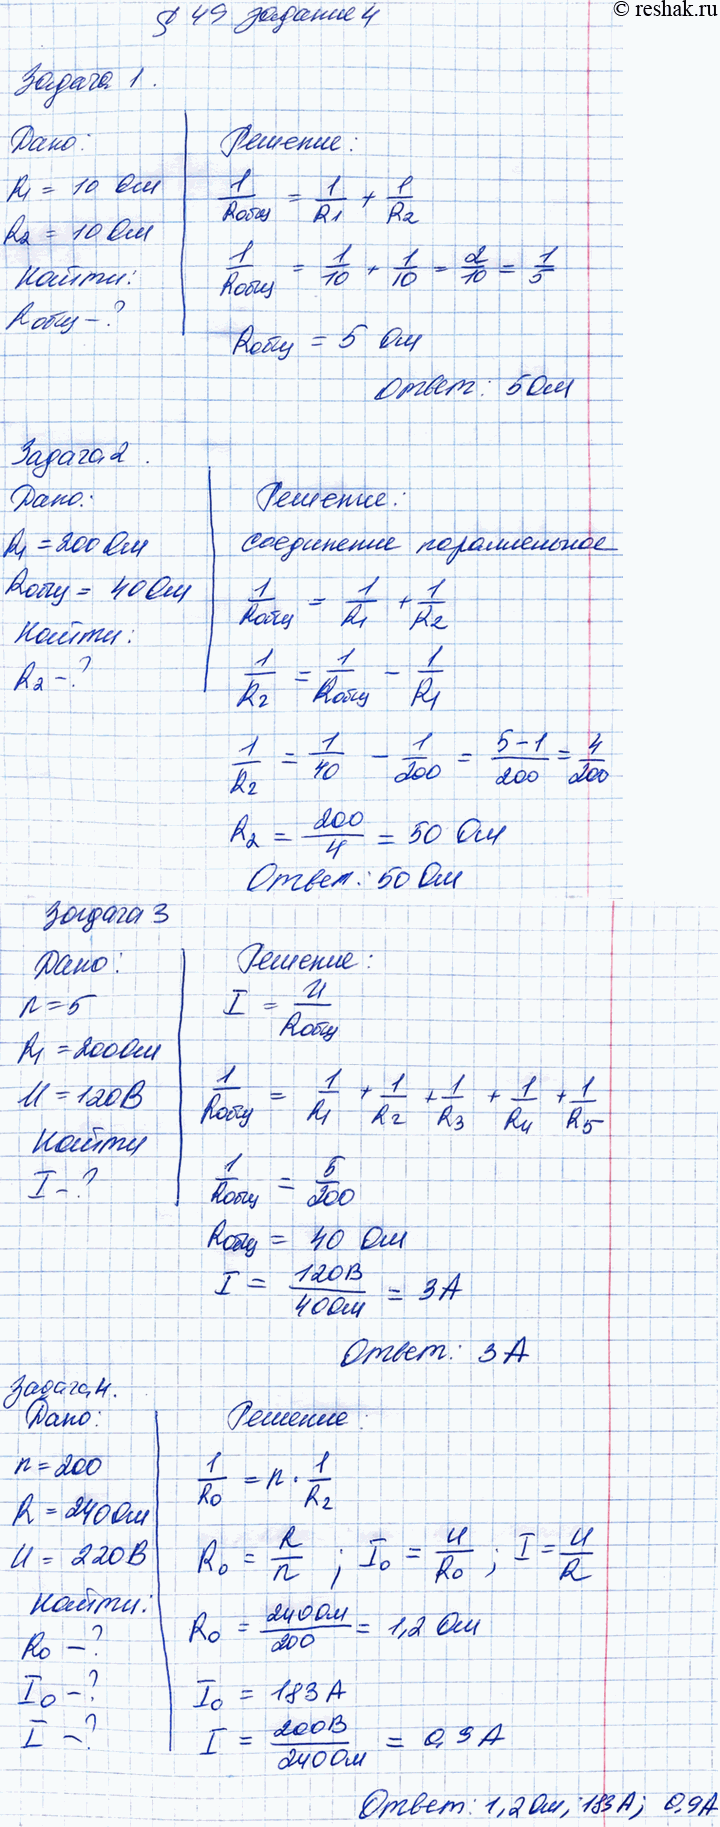 © reshak.ru
§ 49 задание 4
Задача 1.
Дано:
R1 = 10 Ом
R2 = 10 Ом
Найти:
Rобщ - ?
Решение:
1/Rобщ = 1/R1 + 1/R2
1/Rобщ = 1/10 + 1/10 = 2/10 = 1/5
Rобщ = 5 Ом
Ответ: 5 Ом
Задача 2.
Дано:
R1 = 200 Ом
Rобщ = 40 Ом
Найти:
R2 - ?
Решение:
соединение параллельное
1/Rобщ = 1/R1 + 1/R2
1/R2 = 1/Rобщ - 1/R1
1/R2 = 1/40 - 1/200 = 5-1/200 = 4/200
R2 = 200/4 = 50 Ом
Ответ: 50 Ом
Задача 3
Дано:
n = 5
R1 = 200 Ом
U = 120 В
Найти
I - ?
Решение:
I = U/Rобщ
1/Rобщ = 1/R1 + 1/R2 + 1/R3 + 1/R4 + 1/R5
1/Rобщ = 5/200
Rобщ = 40 Ом
I = 120 В/40 Ом = 3 А
Ответ: 3 А
Задача 4.
Дано:
n = 200
R = 240 Ом
U = 220 В
Найти:
R0 - ?
I0 - ?
I - ?
Решение:
1/R0 = n · 1/R2
R0 = R/n ; I0 = U/R0 ; I = U/R
R0 = 240 Ом/200 = 1,2 Ом
I0 = 183 А
I = 200 В/240 Ом = 0,9 А
Ответ: 1,2 Ом; 183 А; 0,9 А